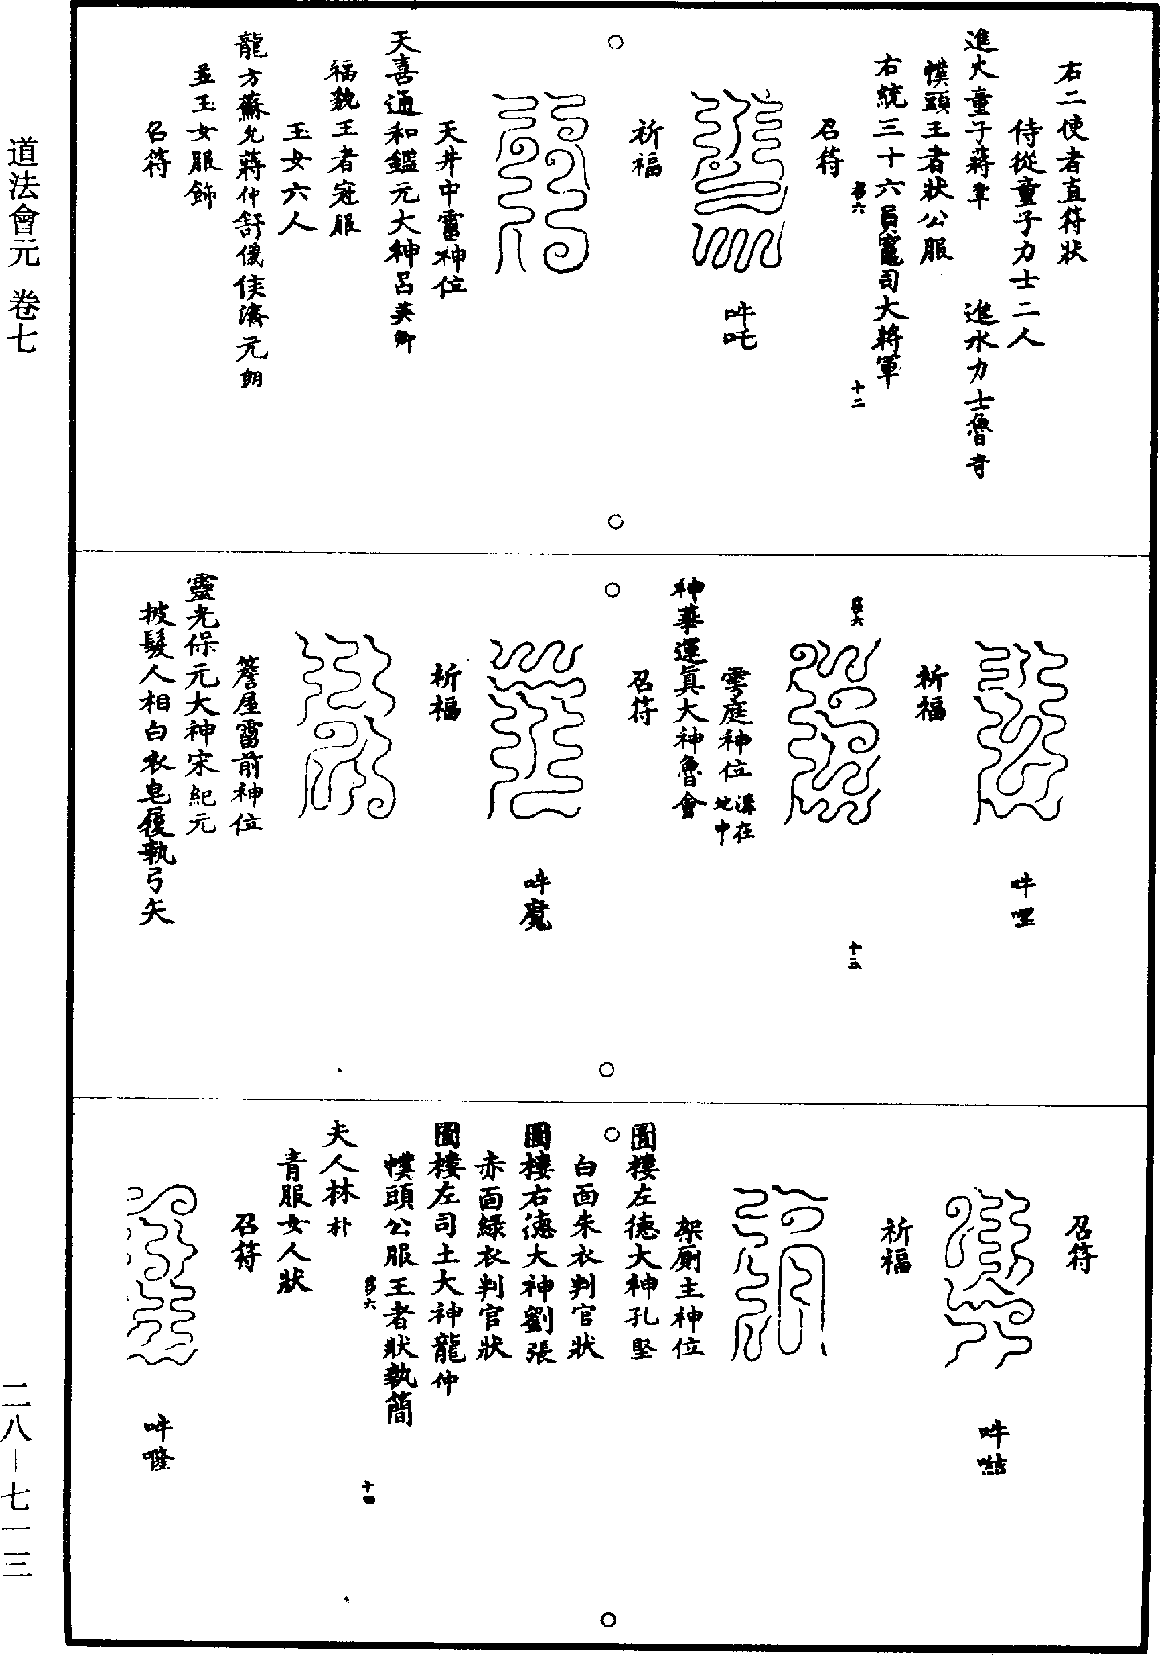 右二使者直符狀
侍從童子力士二人
進火童子蔣 進水力士魯奇
幞頭王者狀公服
右統三十六員竈司大將軍
十二
召符
吽吒
祈福
天井中霤神位
天喜通和鑑元大神呂英卿
福貌王者冠服
玉女六人
龍方蘇允蔣仲舒儀侯濟元朗
並玉女服飾
召符
吽㗚
祈福
十三
雩庭神位溝在地中
神華運真大神魯會
召符
吽魔
祈福
簷屋霤前神位
靈光保元大神宋紀元
披髮人相白衣皂履執弓矢
召符
吽㘉
祈福
架廁主神位
圊樓左德大神孔堅
白面朱衣判官狀
圊樓右德大神劉張
赤面綠衣判官狀
圊樓左司土大神龍仲
幞頭公服王者狀執簡
十四
夫人林朴
青服女人狀
召符
吽㘕
道法會元 卷七
二八—七一三